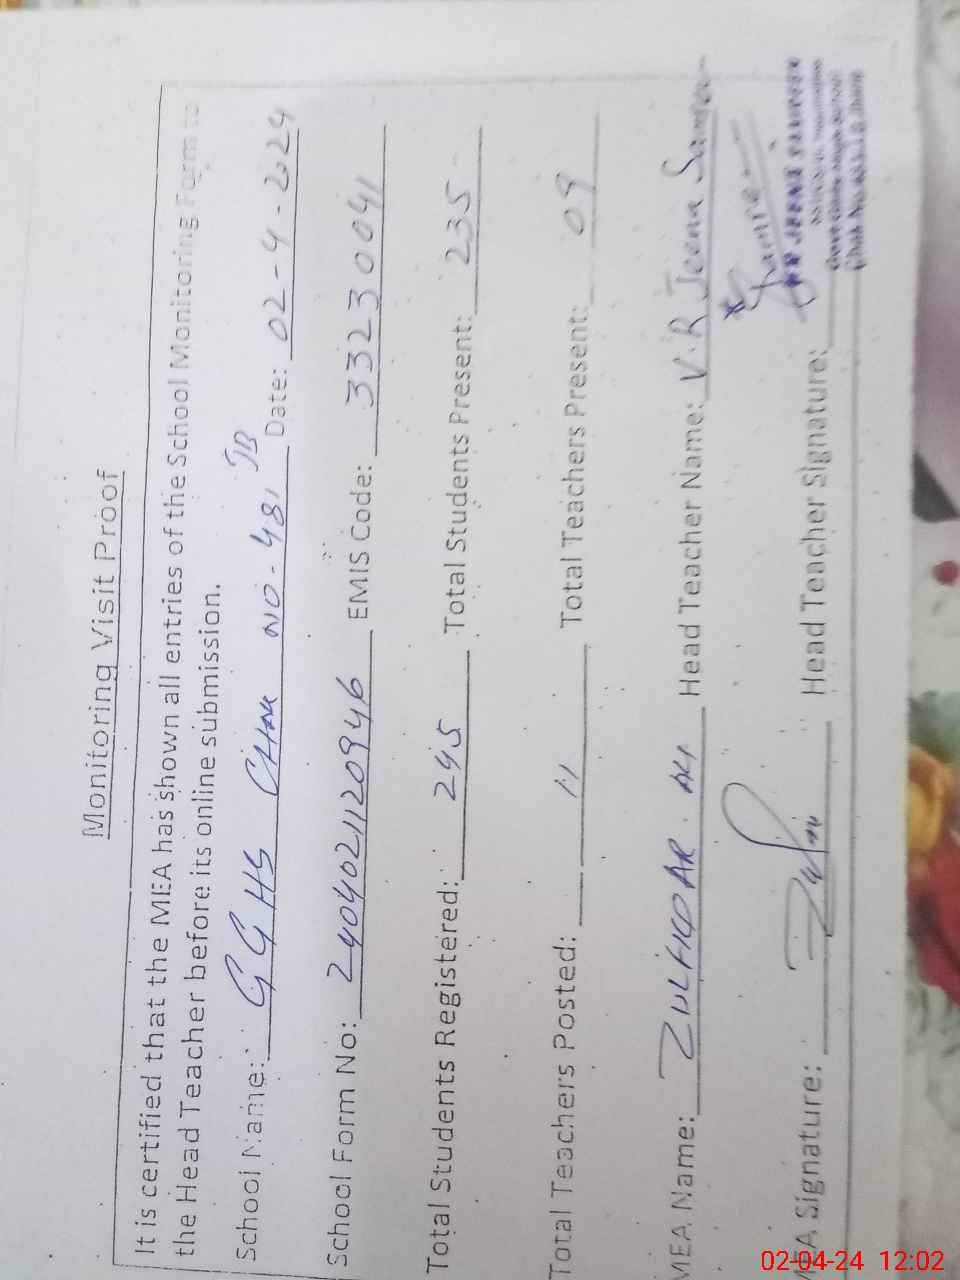 Monitoring Visit Proof
It is certified that the MEA has shown all entries of the School Monitoring Form to
the Head Teacher before its online submission.
School Name: GGHS CHAK NO. 481 JB Date: 02-4-2024
School Form No: 2404021120946 EMIS Code: 33230041
Total Students Registered: 245 Total Students Present: 235
Total Teachers Posted: 11 Total Teachers Present: 09
MEA Name: ZULFIQAR ALI Head Teacher Name: V.R Jeena
MEA Signature: Head Teacher Signature:
02-04-24 12:02